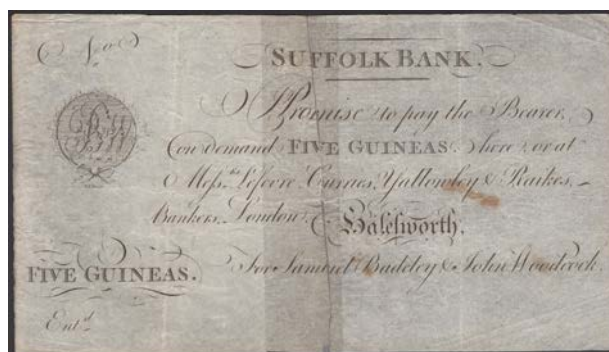 No
SUFFOLK BANK.
I Promise to pay the Bearer,
on demand FIVE GUINEAS. here, or at
Messrs. Lefevre, Curries, Yallowley & Raikes,
Bankers, London.
Halesworth,
FIVE GUINEAS.
For Samuel Badeley & John Woodcock.
Entd.